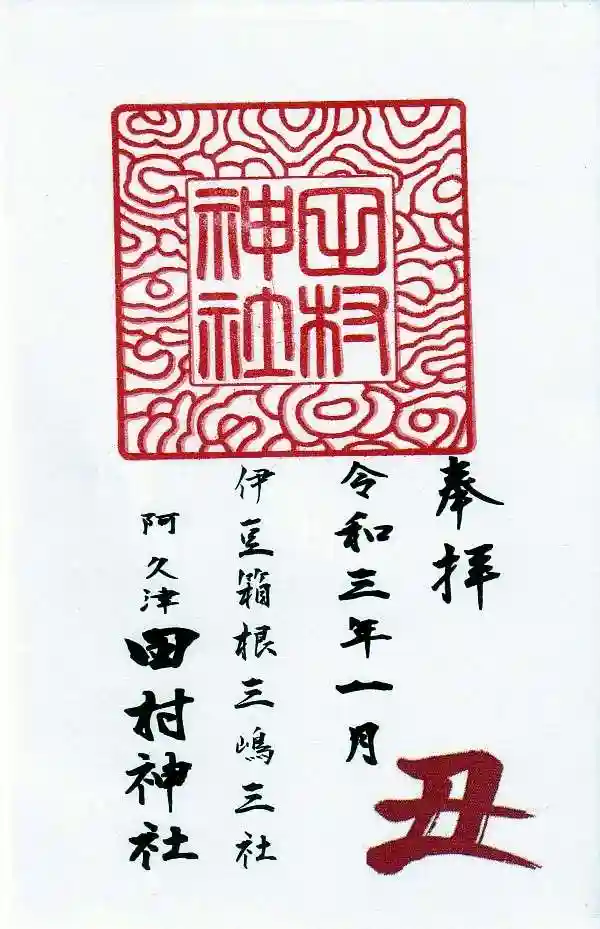 田村
神社
奉拝
丑
令和三年一月
伊豆箱根三嶋三社
阿久津田村神社